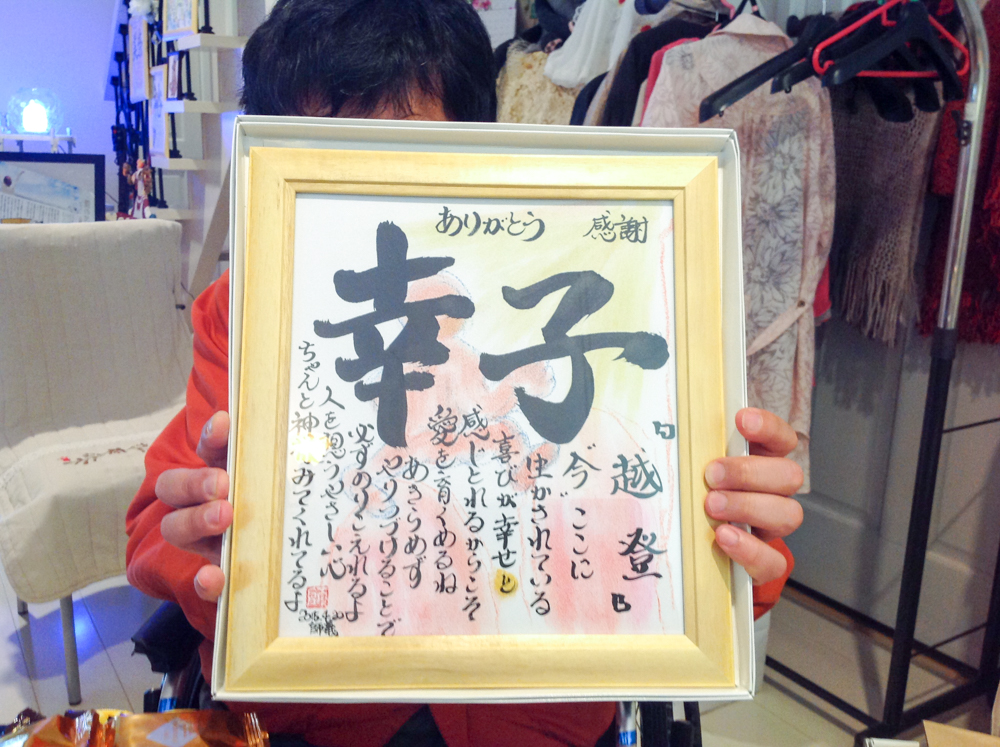 ありがとう 感謝
幸子
「越 登」
今ここに
生かされている
喜びが幸せと
感じとれるからこそ
愛を育くめるね
あきらめず
やりつづけることで
必ずのりこえれるよ
人を思うやさしい心
ちゃんと神 みてくれてるよ